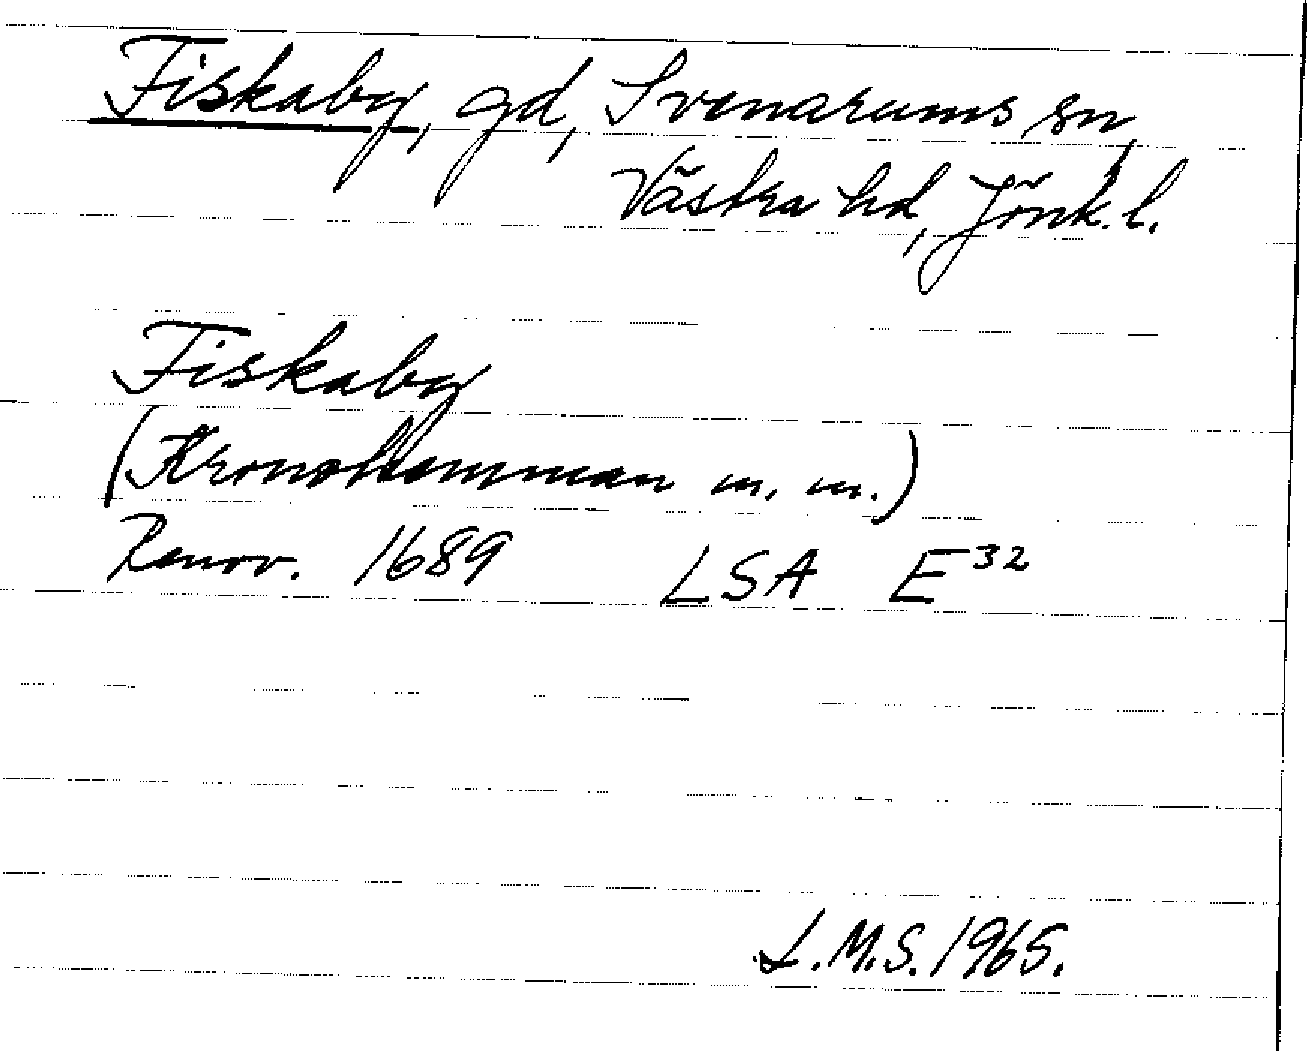 Fiskaby, gd, Svenarums sn,
Västra hd, Jönk. l.
Fiskaby
(Kronohemman m. m.)
Renov. 1689 LSA E³²
L.M.S. 1965.